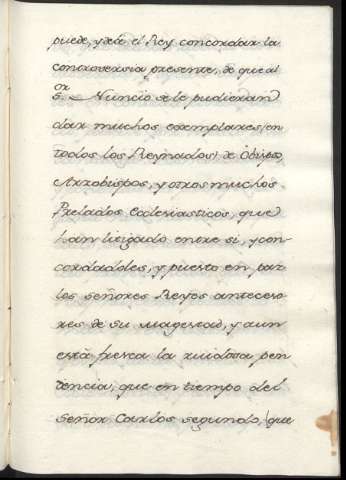 puede, y deve el Rey concordar la
controversia presente, de que al
S.or Nuncio se le pudieran
dar muchos exemplares, en
todos los Reynados, de Obispos,
Arzobispos, y otros muchos
Prelados Eclesiasticos, que
han litigado entre sí, y con-
cordadoles, y puesto en paz
los señores Reyes anteceso-
res de Su Magestad, y aun
está fresca la ruidosa pen
dencia, que en tiempo del
Señor Carlos segundo, que